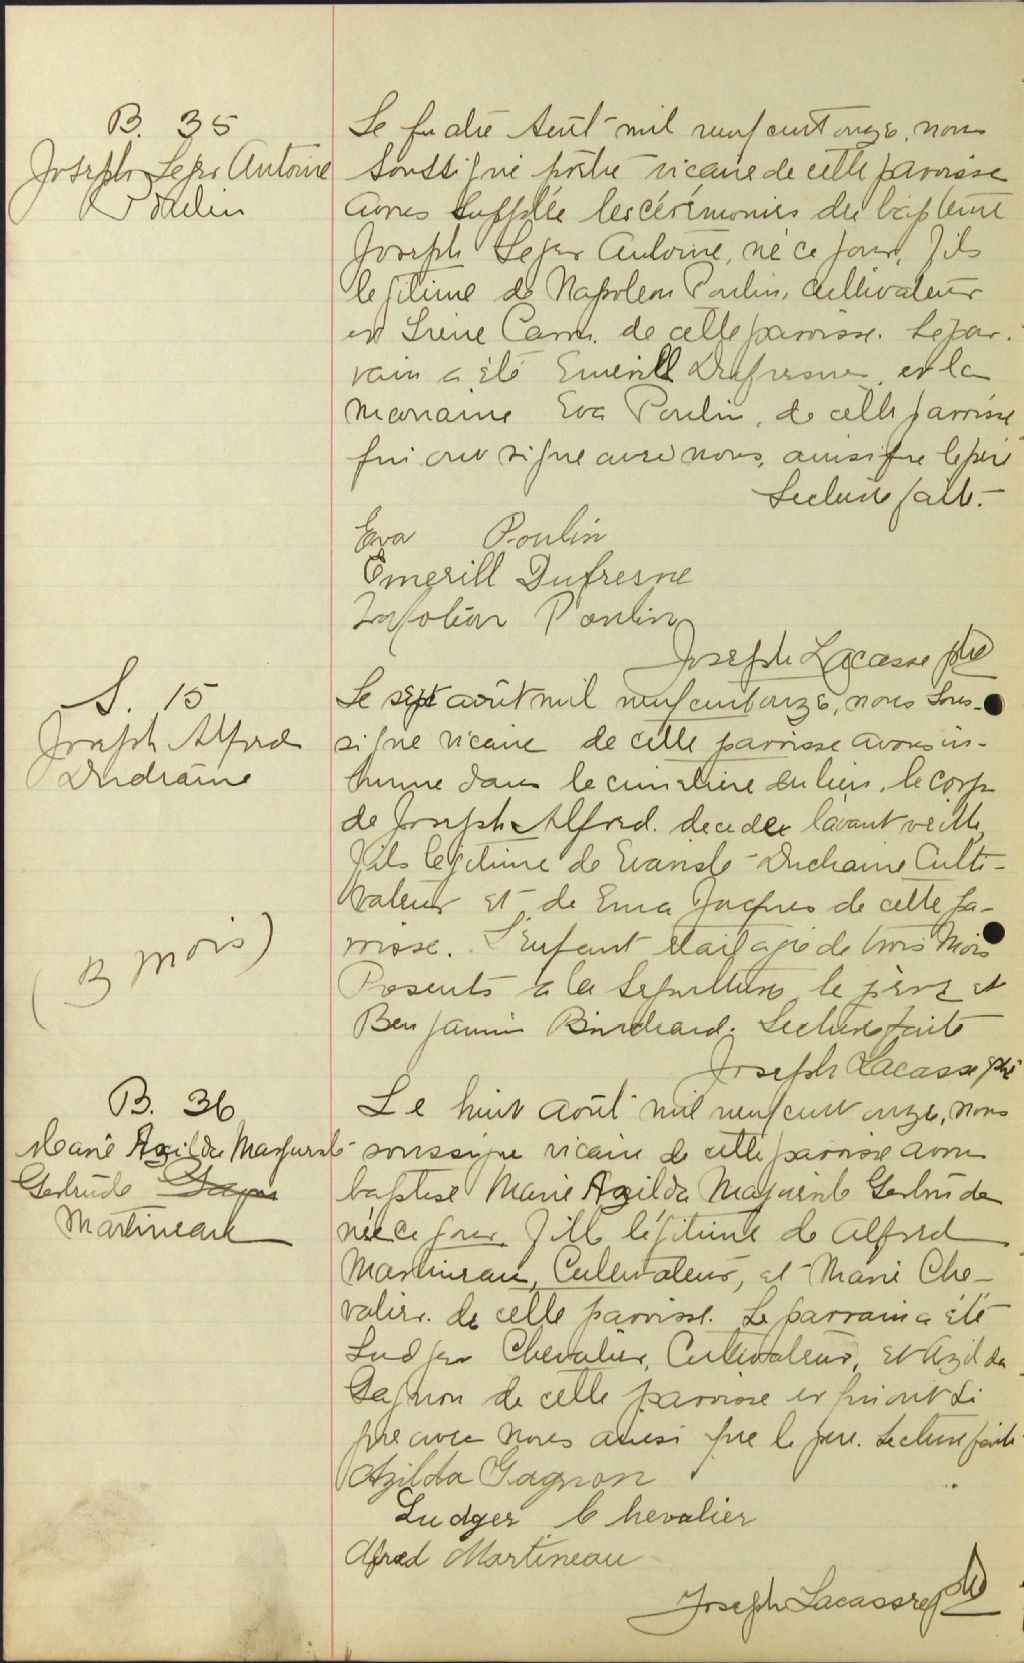 B. 35
Joseph Leger Antoine
Poulin
Le quatre août mil neuf cent onze, nous
soussigné prêtre vicaire de cette paroisse
avons supplée les cérémonies du baptême
Joseph Leger Antoine, né ce jour, fils
legitime de Napoleon Poulin, cultivateur
et Irène Caron, de cette paroisse. Le par-
rain a été Emerill Dufresne et la
marraine Eva Poulin, de cette paroisse
qui ont signé avec nous, ainsi que le père
Lecture faite.-
Eva Poulin
Emerill Dufresne
Napoléon Poulin
Joseph Lacasse ptre
S. 15
Joseph Alfred
Duchaine
(3 mois)
Le sept août mil neuf cent onze, nous sous-
signé vicaire de cette paroisse avons in-
humé dans le cimetière du lieu, le corps
de Joseph Alfred. decedé l'avant veille,
fils legitime de Evariste Duchaine Culti-
vateur et de Ema Jacques de cette pa-
roisse. L'enfant etait agé de trois mois
Presents a la Sepulture le père et
Benjamin Bouchard. Lecture faite
Joseph Lacasse ptre
B. 36
Marie Azilda Marguerite
Gertrude
Martineau
Le huit août mil neuf cent onze, nous
soussigné vicaire de cette paroisse avons
baptisé Marie Azilda Marguerite Gertrude
née ce jour fille légitime de Alfred
Martineau, Cultivateur, et Marie Che-
valier. de cette paroisse. Le parrain a été
Ludger Chevalier, Cultivateur, et Azilda
Gagnon de cette paroisse et qui ont si
gné avec nous ainsi que le père. Lecture faite
Azilda Gagnon
Ludger Chevalier
Alfred Martineau
Joseph Lacasse ptre